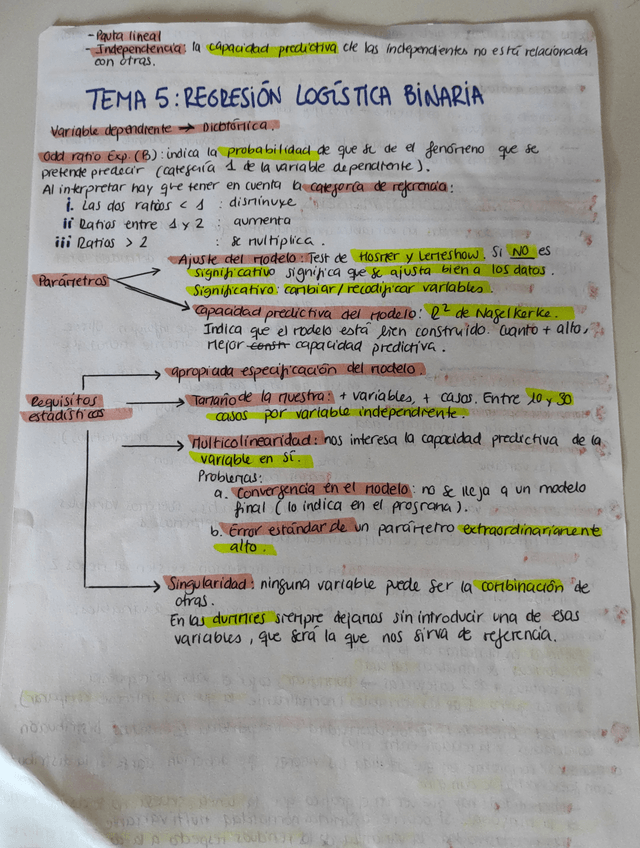 - Pauta lineal
- Independencia la capacidad predictiva de las independientes no está relacionada
con otras.
TEMA 5: REGRESIÓN LOGÍSTICA BINARIA
Variable dependiente → Dicotómica.
Odd ratio Exp. (B): indica la probabilidad de que se de el fenómeno que se
pretende predecir (categoría 1 de la variable dependiente).
Al interpretar hay que tener en cuenta la categoría de referencia:
i. Las dos ratios < 1 : disminuye
ii Ratios entre 1 y 2 : aumenta
iii Ratios > 2 : se multiplica.
Parámetros
Ajuste del modelo: Test de Hosmer y Lemeshow. Si NO es
significativo significa que se ajusta bien a los datos.
Significativo: cambiar/recodificar variables.
Capacidad predictiva del modelo: R² de Nagelkerke.
Indica que el modelo está bien construido. Cuanto + alto,
mejor constr capacidad predictiva.
Requisitos
estadísticos
apropiada especificación del modelo
Tamaño de la muestra: + variables, + casos. Entre 10 y 30
casos por variable independiente.
Multicolinearidad: nos interesa la capacidad predictiva de la
variable en sí.
Problemas:
a. Convergencia en el modelo: no se llega a un modelo
final (lo indica en el programa).
b. Error estándar de un parámetro extraordinariamente
alto.
Singularidad: ninguna variable puede ser la combinación de
otras.
En las dummies siempre dejamos sin introducir una de esas
variables, que será la que nos sirva de referencia.